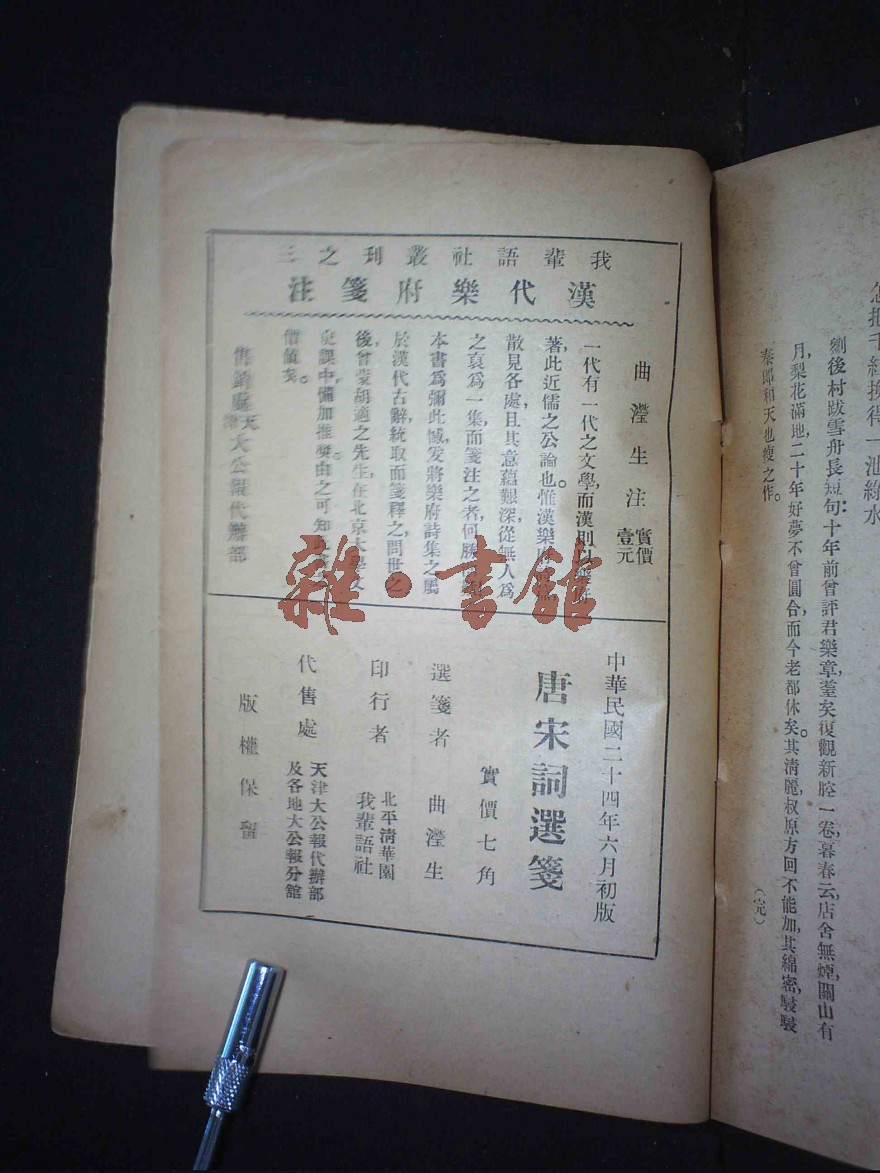 怎把千紅換得一池綠水
劉後村跋雪舟長短句：十年前曾評君樂章，耄矣復觀新腔一卷，暮春云，店舍無煙，關山有
月，梨花滿地，二十年好夢不曾圓合，而今老都休矣。其清麗，叔原方回不能加，其綿密，駸駸
秦郎和天也瘦之作。
（完）
我輩語社叢刊之三
漢代樂府箋注
曲瀅生注
實價
壹元
一代有一代之文學，而漢則以
著，此近儒之公論也。惟漢樂府
散見各處，且其意蘊艱深，從無人為
之裒為一集，而箋注之者，何勝
本書為彌此憾，爰將樂府詩集之屬
於漢代古辭，統取而箋釋之，問世之
後，曾蒙胡適之先生，在北京大學文
史課中，備加推獎，由之可知
價值矣。
售銷處
天津
大公報代辦部
中華民國二十四年六月初版
唐宋詞選箋
實價七角
選箋者 曲瀅生
印行者
北平清華園
我輩語社
代售處
天津大公報代辦部
及各地大公報分館
版權保留
雜·書館